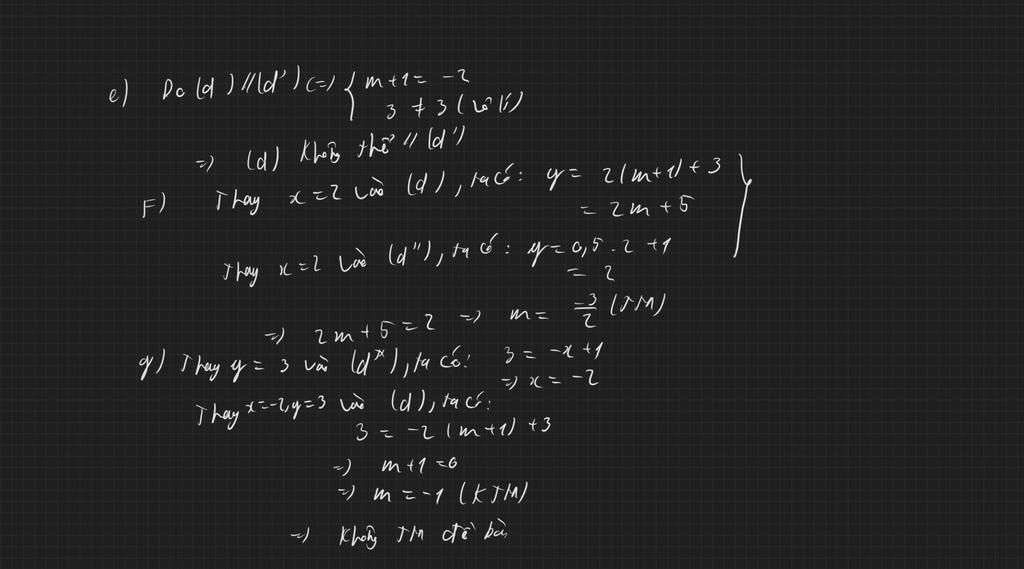 e) Do (d) // (d') <=> { m+1 = -2
3 ≠ 3 (vô lí)
=> (d) không thể // (d')
F) Thay x = 2 vào (d), ta có: y = 2(m+1) + 3 }
= 2m + 5
Thay x = 2 vào (d''), ta có: y = 0,5 . 2 + 1
= 2
=> 2m + 5 = 2 => m = -3/2 (TM)
g) Thay y = 3 vào (d*), ta có: 3 = -x + 1
=> x = -2
Thay x = -2, y = 3 vào (d), ta có:
3 = -2 (m+1) + 3
=> m+1 = 0
=> m = -1 (KTM)
=> không TM đề bài